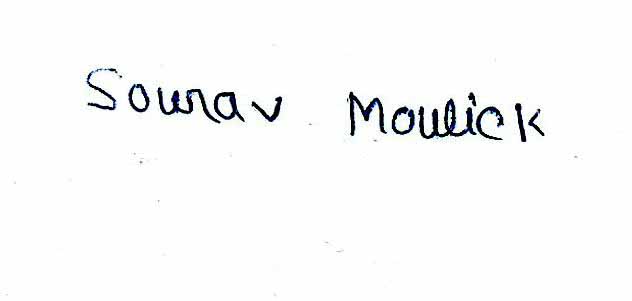 Sourav Moulick